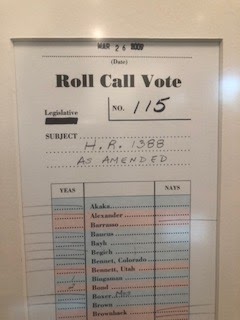 MAR 26 2009
(Date)
Roll Call Vote
Legislative
NO. 115
SUBJECT
H.R. 1388
AS AMENDED
YEAS
NAYS
Akaka
Alexander
Barrasso
Baucus
Bayh
Begich
Bennet, Colorado
Bennett, Utah
Bingaman
Bond
Boxer
Brown
Brownback